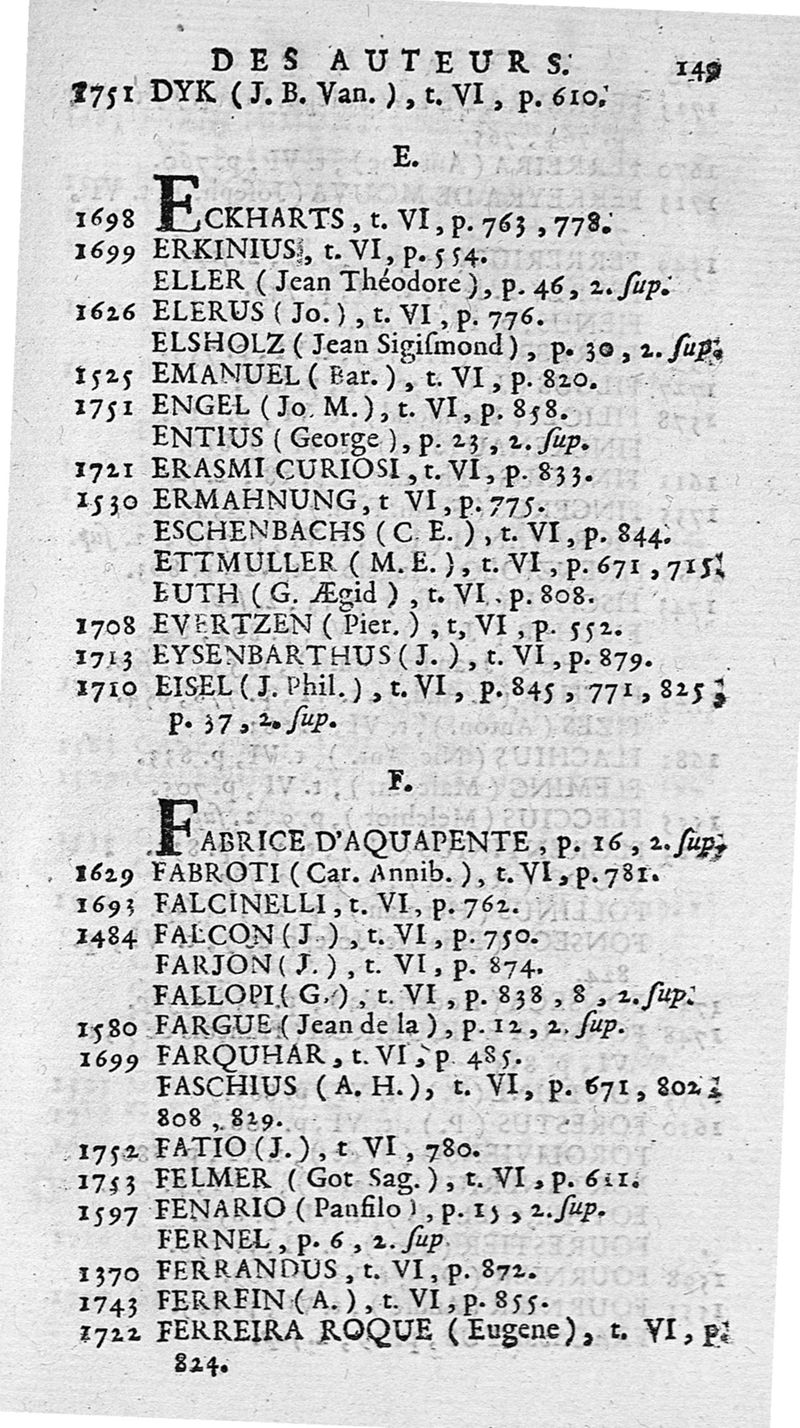 DES AUTEURS. 149
1751 DYK (J. B. Van.), t. VI, p. 610.
E.
1698 ECKHARTS, t. VI, p. 763, 778.
1699 ERKINIUS, t. VI, p. 554.
ELLER (Jean Théodore), p. 46, 2. ſup.
1626 ELERUS (Jo.), t. VI, p. 776.
ELSHOLZ (Jean Sigiſmond), p. 30, 2. ſup.
1525 EMANUEL (Bar.), t. VI, p. 820.
1751 ENGEL (Jo. M.), t. VI, p. 858.
ENTIUS (George), p. 23, 2. ſup.
1721 ERASMI CURIOSI, t. VI, p. 833.
1530 ERMAHNUNG, t VI, p. 775.
ESCHENBACHS (C. E.), t. VI, p. 844.
ETTMULLER (M. E.), t. VI, p. 671, 715.
EUTH (G. Ægid), t. VI. p. 808.
1708 EVERTZEN (Pier.), t, VI, p. 552.
1713 EYSENBARTHUS (J.), t. VI, p. 879.
1710 EISEL (J. Phil.), t. VI, p. 845, 771, 825;
p. 37, 2. ſup.
F.
FABRICE D'AQUAPENTE, p. 16, 2. ſup.
1629 FABROTI (Car. Annib.), t. VI, p. 781.
1693 FALCINELLI, t. VI, p. 762.
1484 FALCON (J ), t. VI, p. 750.
FARJON (J.), t. VI, p. 874.
FALLOPI (G.), t. VI, p. 838, 8, 2. ſup.
1580 FARGUE (Jean de la), p. 12, 2. ſup.
1699 FARQUHAR, t. VI, p 485.
FASCHIUS (A. H.), t. VI, p. 671, 802,
808, 829.
1752 FATIO (J.), t VI, 780.
1753 FELMER (Got Sag.), t. VI, p. 611.
1597 FENARIO (Panfilo), p. 15, 2. ſup.
FERNEL, p. 6, 2. ſup
1370 FERRANDUS, t. VI, p. 872.
1743 FERREIN (A.), t. VI, p. 855.
1722 FERREIRA ROQUE (Eugene), t. VI, p.
824.